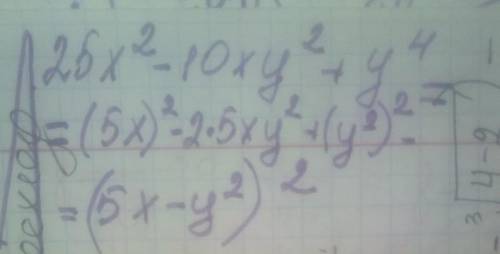 25x² - 10xy² + y⁴
= (5x)² - 2·5xy² + (y²)² =
= (5x - y²)²
4-9